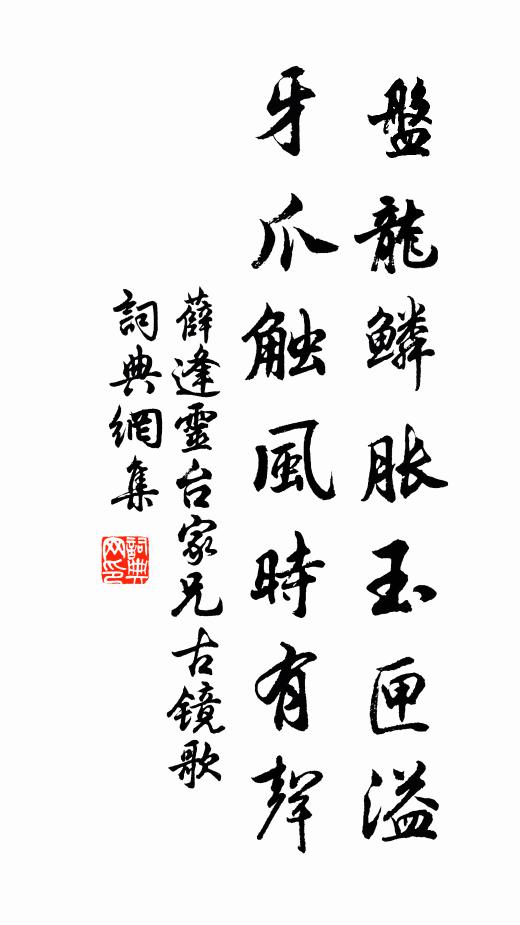 盤龍鱗胀玉匣溢
牙爪触風時有聲
薛逢靈台家兄古镜歌
詞典網集
詞典网印